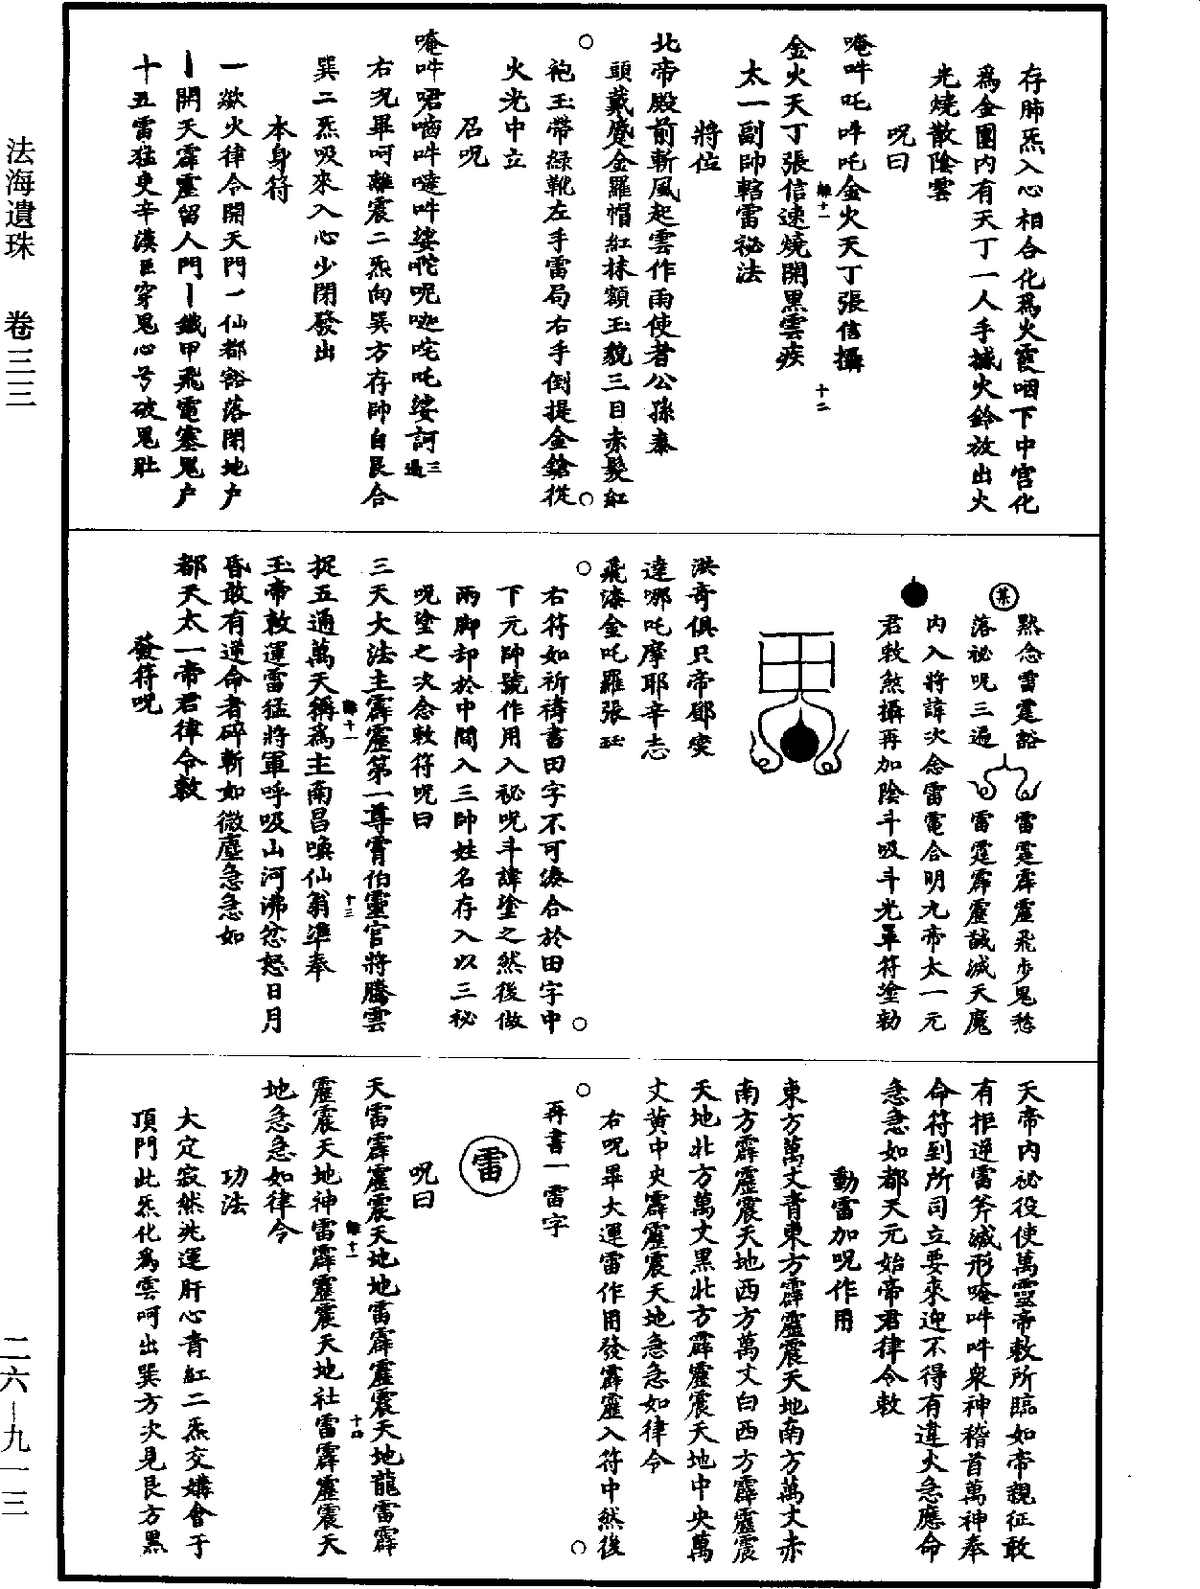 存肺炁入心相合化爲火雲咽下中宮化
爲金團內有天丁一人手擲火鈴放出火
光燒散陰雲
呪曰
唵吽吒吽吒金火天丁張信攝
金火天丁張信速燒開黑雲疾
太一副帥轄雷祕法
將位
北帝殿前斬風起雲作雨使者公孫泰
頭戴㡌金羅帽紅抹額玉貌三目赤髮紅
袍玉帶綠靴左手雷局右手倒提金鎗從
火光中立
召呪
唵吽㖀嚙吽噠吽娑㖿呢咃咤吒娑訶三遍
右呪畢呵離震二炁向巽方存帥自艮合
巽二炁吸來入心少閉發出
本身符
一歘火律令開天門一仙都豁落閉地户
丨開天霹靂留人門丨鐵甲飛電塞鬼户
十五雷猛吏辛漢臣穿鬼心䒓破鬼肚
默念雷霆豁
落祕呪三遍
雷霆霹靂飛步鬼愁
雷霆霹靂馘滅天魔
某
內入將諱次念雷電合明九帝太一元
君敕煞攝再加陰斗吸斗光罩符塗勑
洪奇俱只帝鄧燮
達哪吒摩耶辛志
飛漆金吒羅張珏
右符如祈禱書田字不可湊合於田字中
下元帥號作用入祕呪斗諱塗之然後做
兩脚却於中間入三帥姓名存入以三祕
呪塗之次念敕符呪曰
三天大法主霹靂第一尊霄伯靈官將騰雲
捉五通萬天稱爲主南昌喚仙翁準奉
玉帝敕運雷猛將軍呼吸山河沸忿怒日月
昏敢有逆命者碎斬如微塵急急如
都天太一帝君律令敕
發符呪
天帝內祕役使萬靈帝敕所臨如帝親征敢
有拒逆雷斧滅形唵吽吽衆神稽首萬神奉
命符到所司立要來迎不得有違火急應命
急急如都天元始帝君律令敕
動雷加呪作用
東方萬丈青東方霹靂震天地南方萬丈赤
南方霹靂震天地西方萬丈白西方霹靂震
天地北方萬丈黑北方霹靂震天地中央萬
丈黃中央霹靂震天地急急如律令
右呪畢大運雷作用發霹靂入符中然後
再書一雷字
雷
呪曰
天雷霹靂震天地地雷霹靂震天地龍雷霹
靂震天地神雷霹靂震天地社雷霹靂震天
地急急如律令
功法
大定寂然兆運肝心青紅二炁交媾會于
頂門此炁化爲雲呵出巽方次見艮方黑
法海遺珠　卷三三
二六-九一三